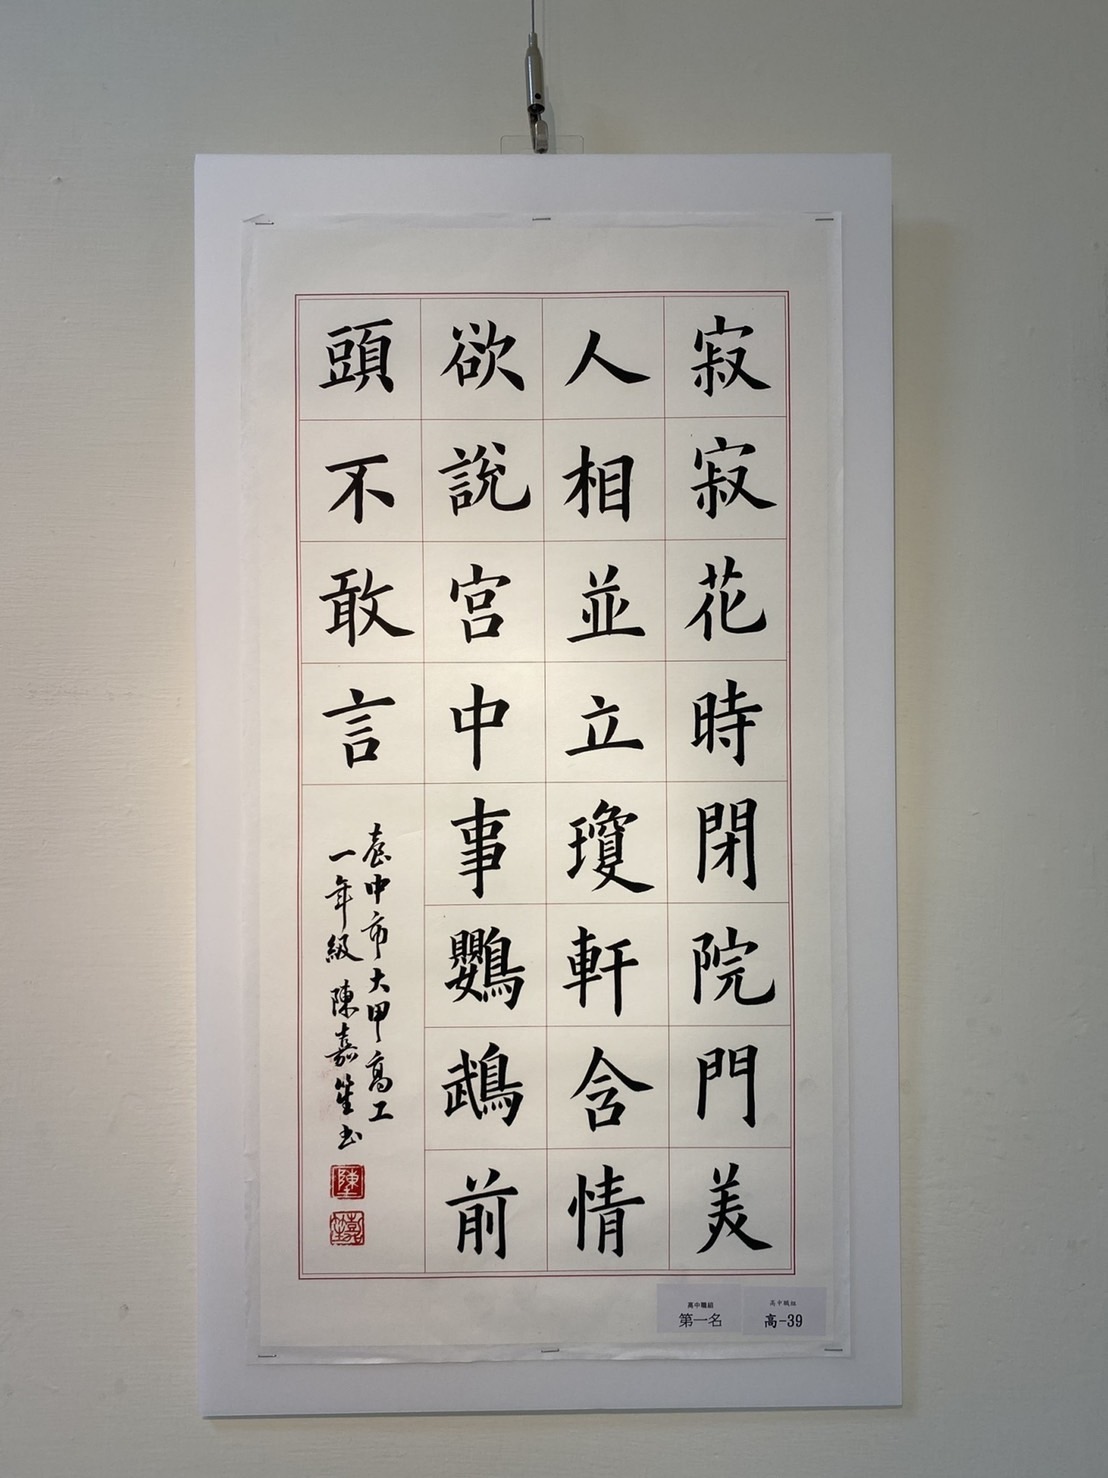 寂寂花時閉院門美
人相並立瓊軒含情
欲說宮中事鸚鵡前
頭不敢言
臺中市大甲高工
一年級 陳嘉笙书
高中職組
第一名
高中職組
高-39